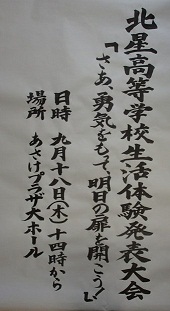 北星高等学校生活体験発表大会
「さあ、勇気をもって、明日の扉を開こう！」
日時 九月十八日(木)十四時から
場所 あさけプラザ大ホール